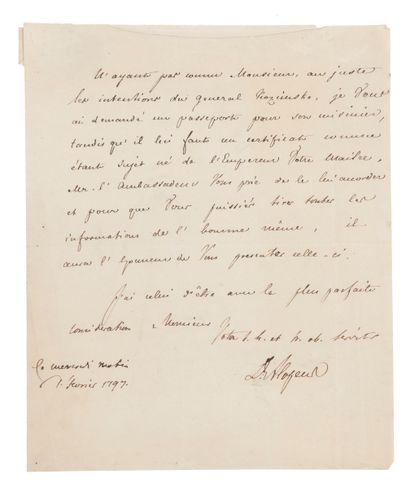 N'ayant pas connu Monsieur, au juste
les intentions du general Kozinsko, je Vous
ai demandé un passeport pour son cuisinier,
tandis qu'il lui faut un certificat comme
étant sujet né de l'Empereur Votre Maitre,
Mr. l'Ambassadeur Vous prie de le lui accorder
et pour que Vous puissiés tirer toutes les
informations de l'homme même, il
aura l'honneur de Vous presenter celle-ci.
J'ai celui d'être avec la plus parfaite
consideration Monsieur
Votre t. h. et t. ob. servitr
ce mercredi matin
1. Fevrier 1797.